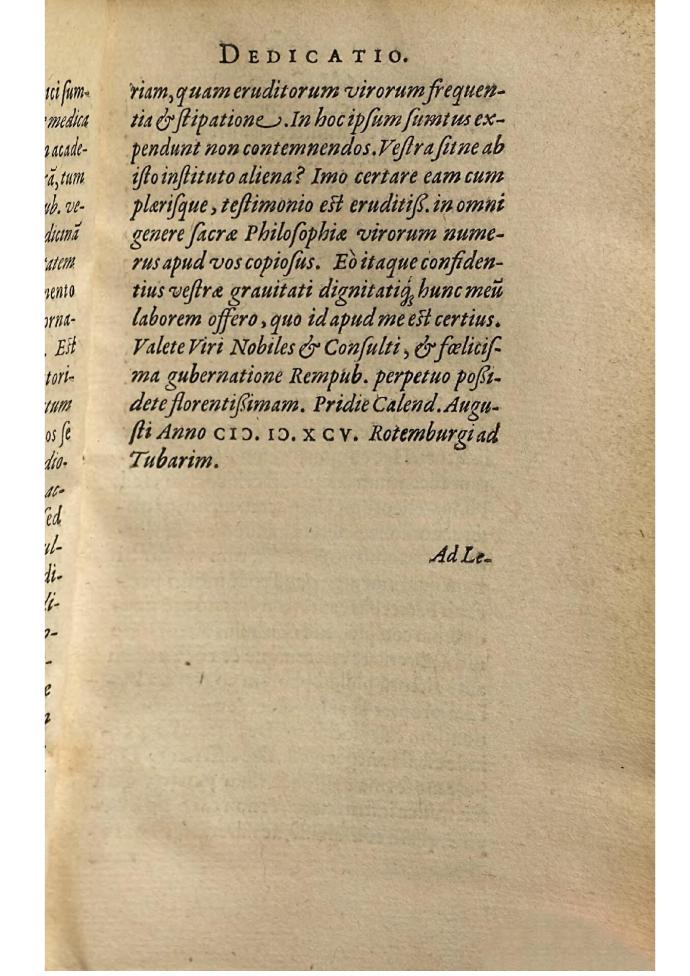 DEDICATIO.
riam, quam eruditorum virorum frequen-
tia & ſtipatione. In hoc ipſum ſumtus ex-
pendunt non contemnendos. Veſtra ſitne ab
iſto inſtituto aliena? Imo certare eam cum
plæriſque, teſtimonio eſt eruditiß. in omni
genere ſacræ Philoſophiæ virorum nume-
rus apud vos copioſus. Eò itaque confiden-
tius veſtræ grauitati dignitatiq́; hunc meũ
laborem offero, quo id apud me eſt certius.
Valete Viri Nobiles & Conſulti, & fœliciſ-
ma gubernatione Rempub. perpetuo poßi-
dete florentißimam. Pridie Calend. Augu-
ſti Anno CIↃ. IↃ. XCV. Rotemburgi ad
Tubarim.
Ad Le-
uci ſum-
medica
acade-
tum
ub. ve-
dicinã
tatem
mento
orna-
Eſt
tori-
tum
os ſe
dio-
ac-
ſed
ul-
di-
li-